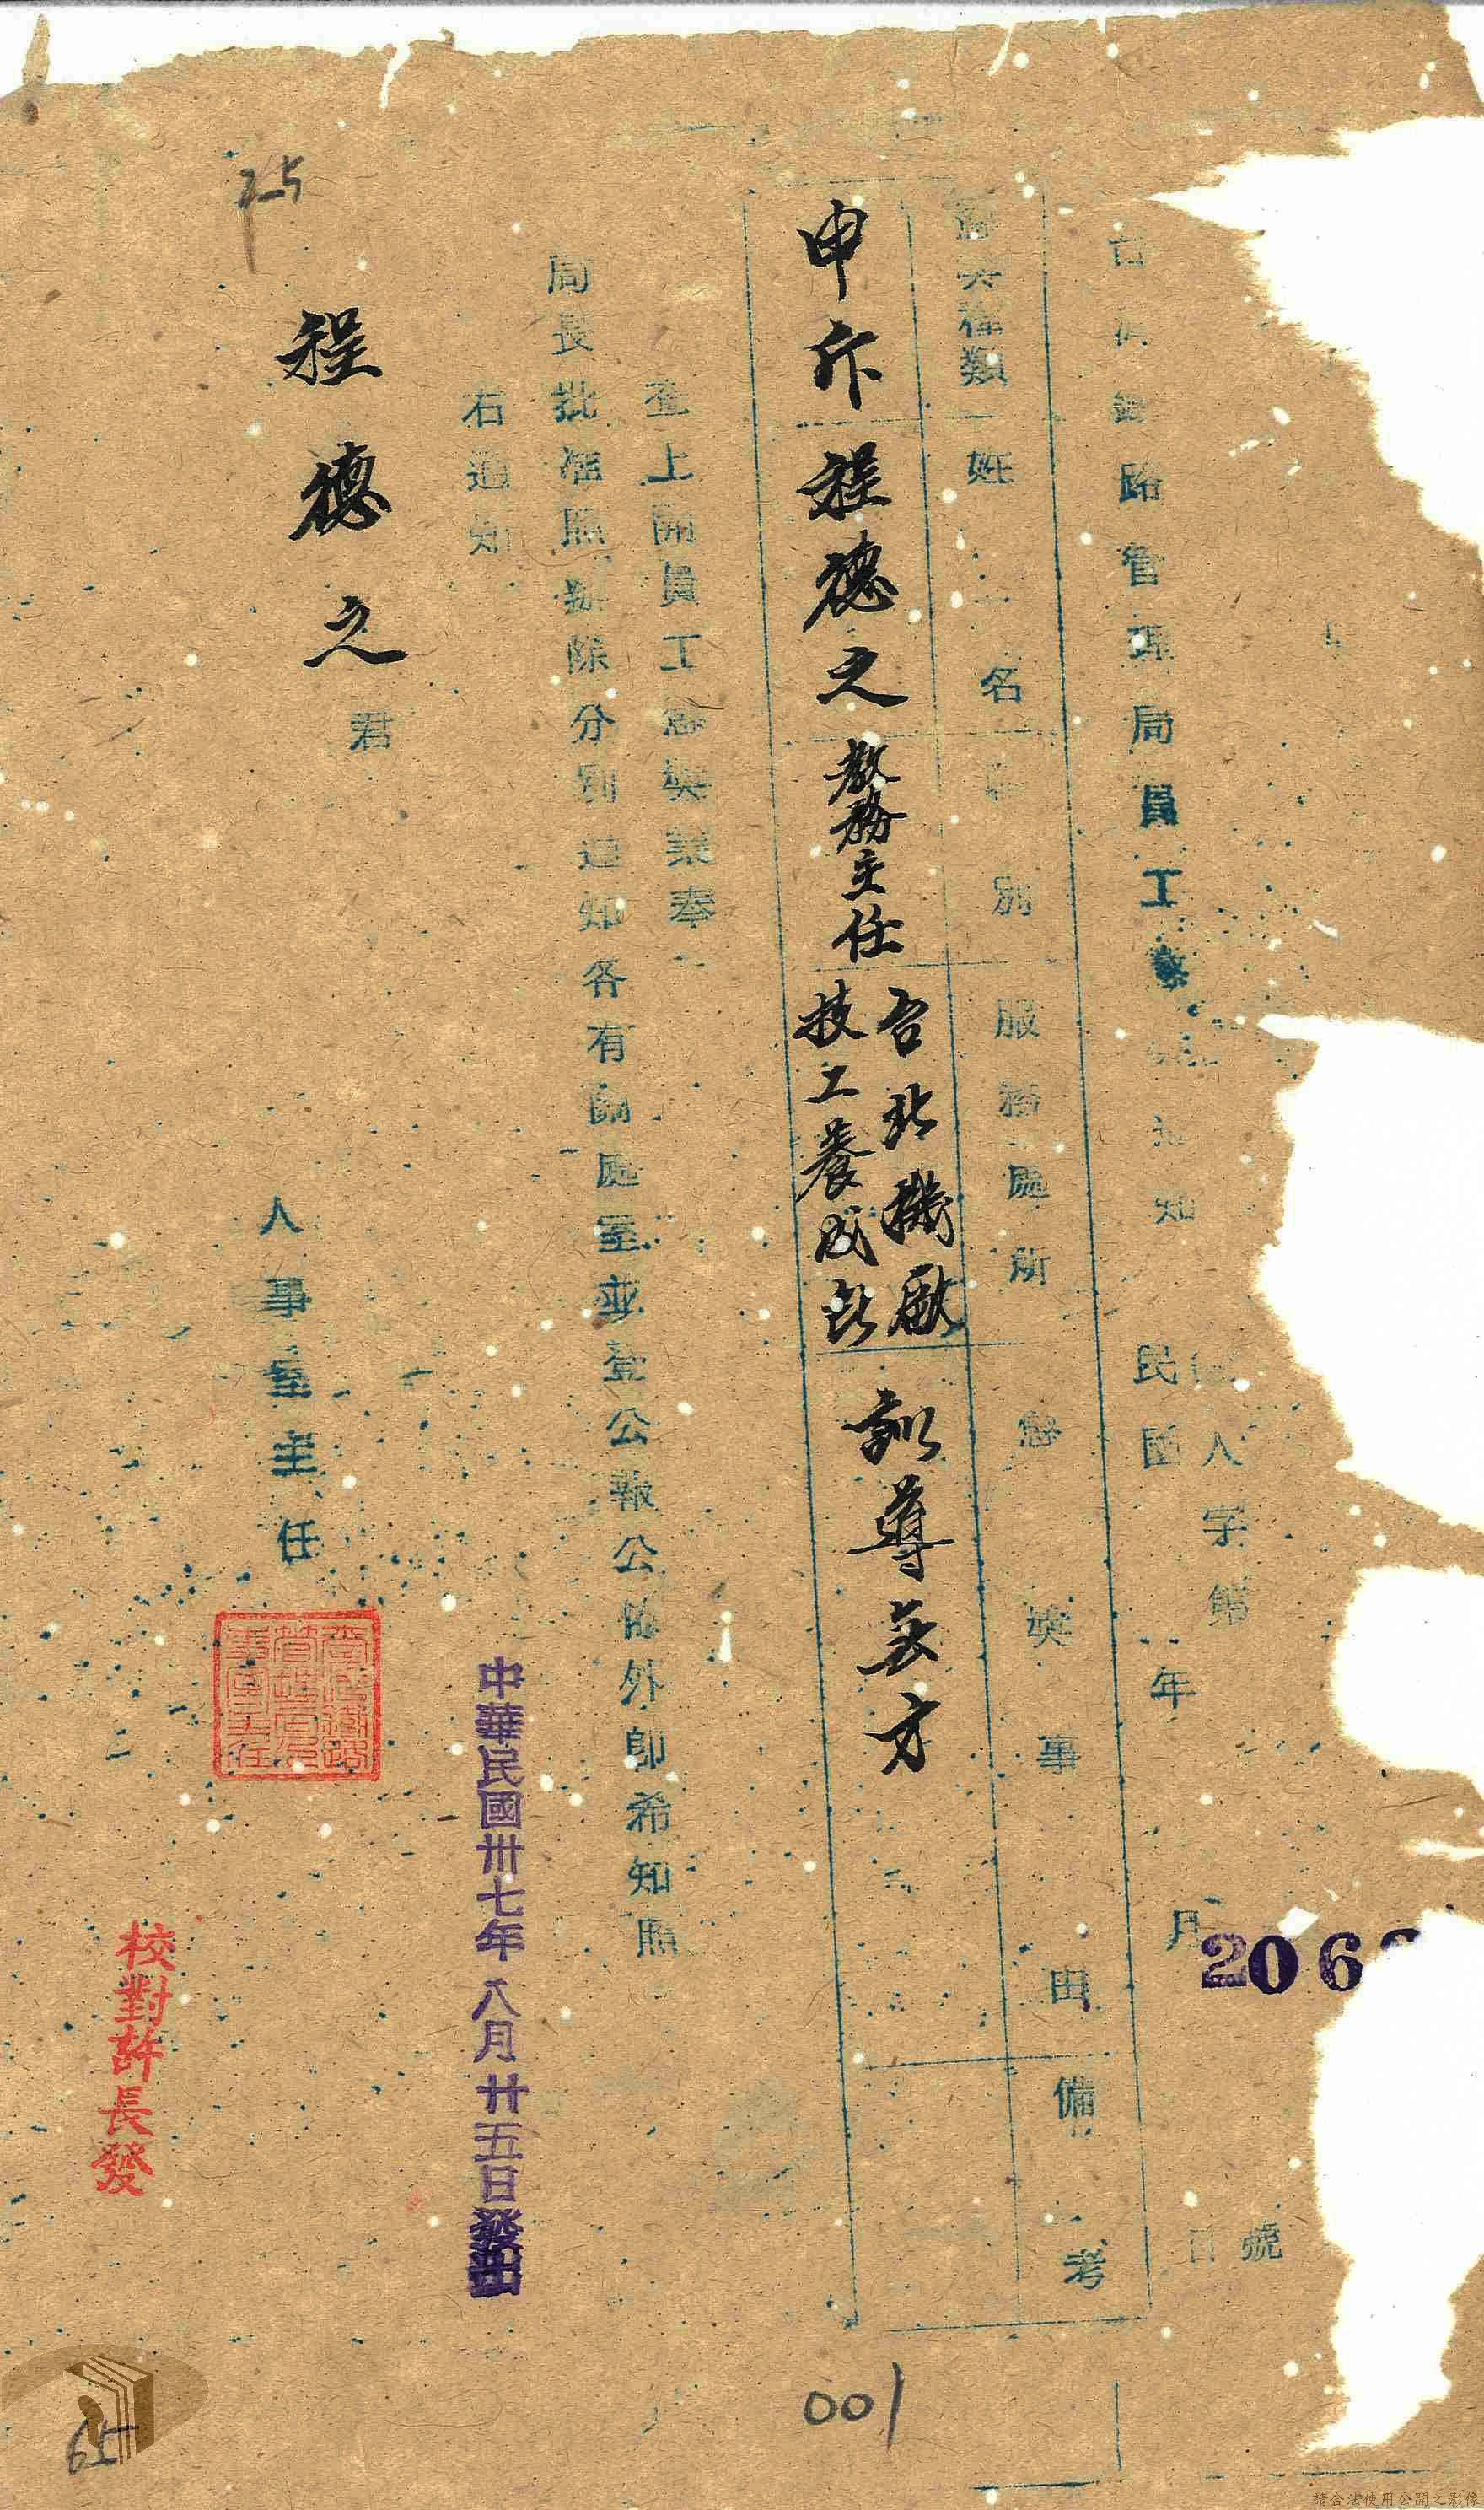 人字第 號
206
民國 年 月 日
台灣鐵路管理局員工懲獎通知
懲獎種類 姓名 職別 服務處所 懲獎事由 備考
申斥 程德之 教務主任 台北機廠技工養成所 訓導無方
查上開員工懲獎業奉
局長批准照辦除分別通知各有關處室並登公報公佈外即希知照
右通知
程德之君
中華民國卅七年八月廿五日發出
人事室主任
校對許長發
25
001
65
請合法使用公開之影像